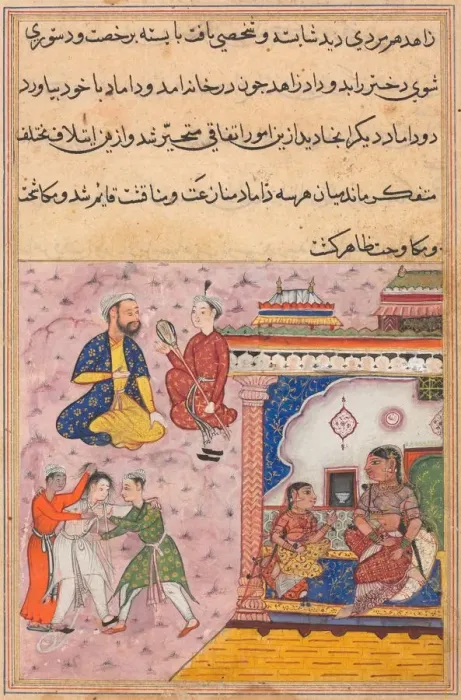 زاهد هر مردي ديد شابسته و شخصي يافت بابسته برخصت و دستوري
شوي دختر را بدو داد زاهد چون در خانه امد و داماد با خود بياورد
دو داماد ديكر انجا ديد ازين امور اتفاقي متحيّر شد و ازين ايتلاف مختلف
متفكر ماند ميان هر سه داماد منازعت و مناقشت قايم شد و مكاشحت
و مكاوحت ظاهر كشت